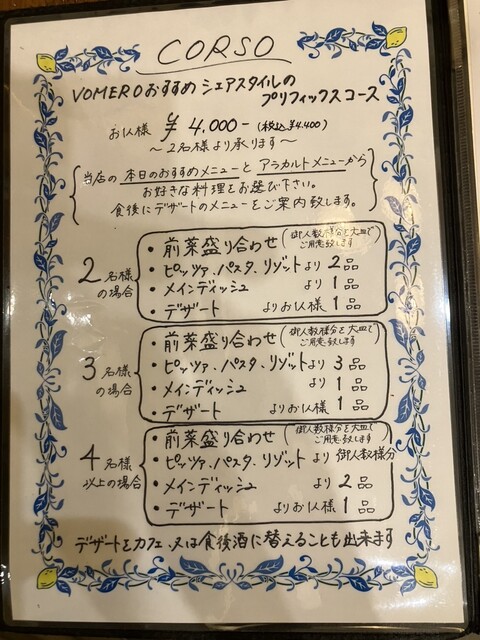 CORSO
VOMEROおすすめ シェアスタイルの
プリフィックスコース
お1人様 ¥4,000- (税込¥4.400)
〜2名様より承ります〜
当店の 本日のおすすめメニューと アラカルトメニューから
お好きな料理をお選び下さい。
食後にデザートのメニューをご案内致します。
2名様の場合
・前菜盛り合わせ (御人数様分を大皿でご用意致します)
・ピッツァ、パスタ、リゾットより 2品
・メインディッシュ より 1品
・デザート よりお1人様 1品
3名様の場合
・前菜盛り合わせ (御人数様分を大皿でご用意致します)
・ピッツァ、パスタ、リゾットより 3品
・メインディッシュ より 1品
・デザート よりお1人様 1品
4名様以上の場合
・前菜盛り合わせ (御人数様分を大皿でご用意致します)
・ピッツァ、パスタ、リゾット より 御人数様分
・メインディッシュ より 2品
・デザート よりお1人様 1品
デザートをカフェ、又は食後酒に替えることも出来ます